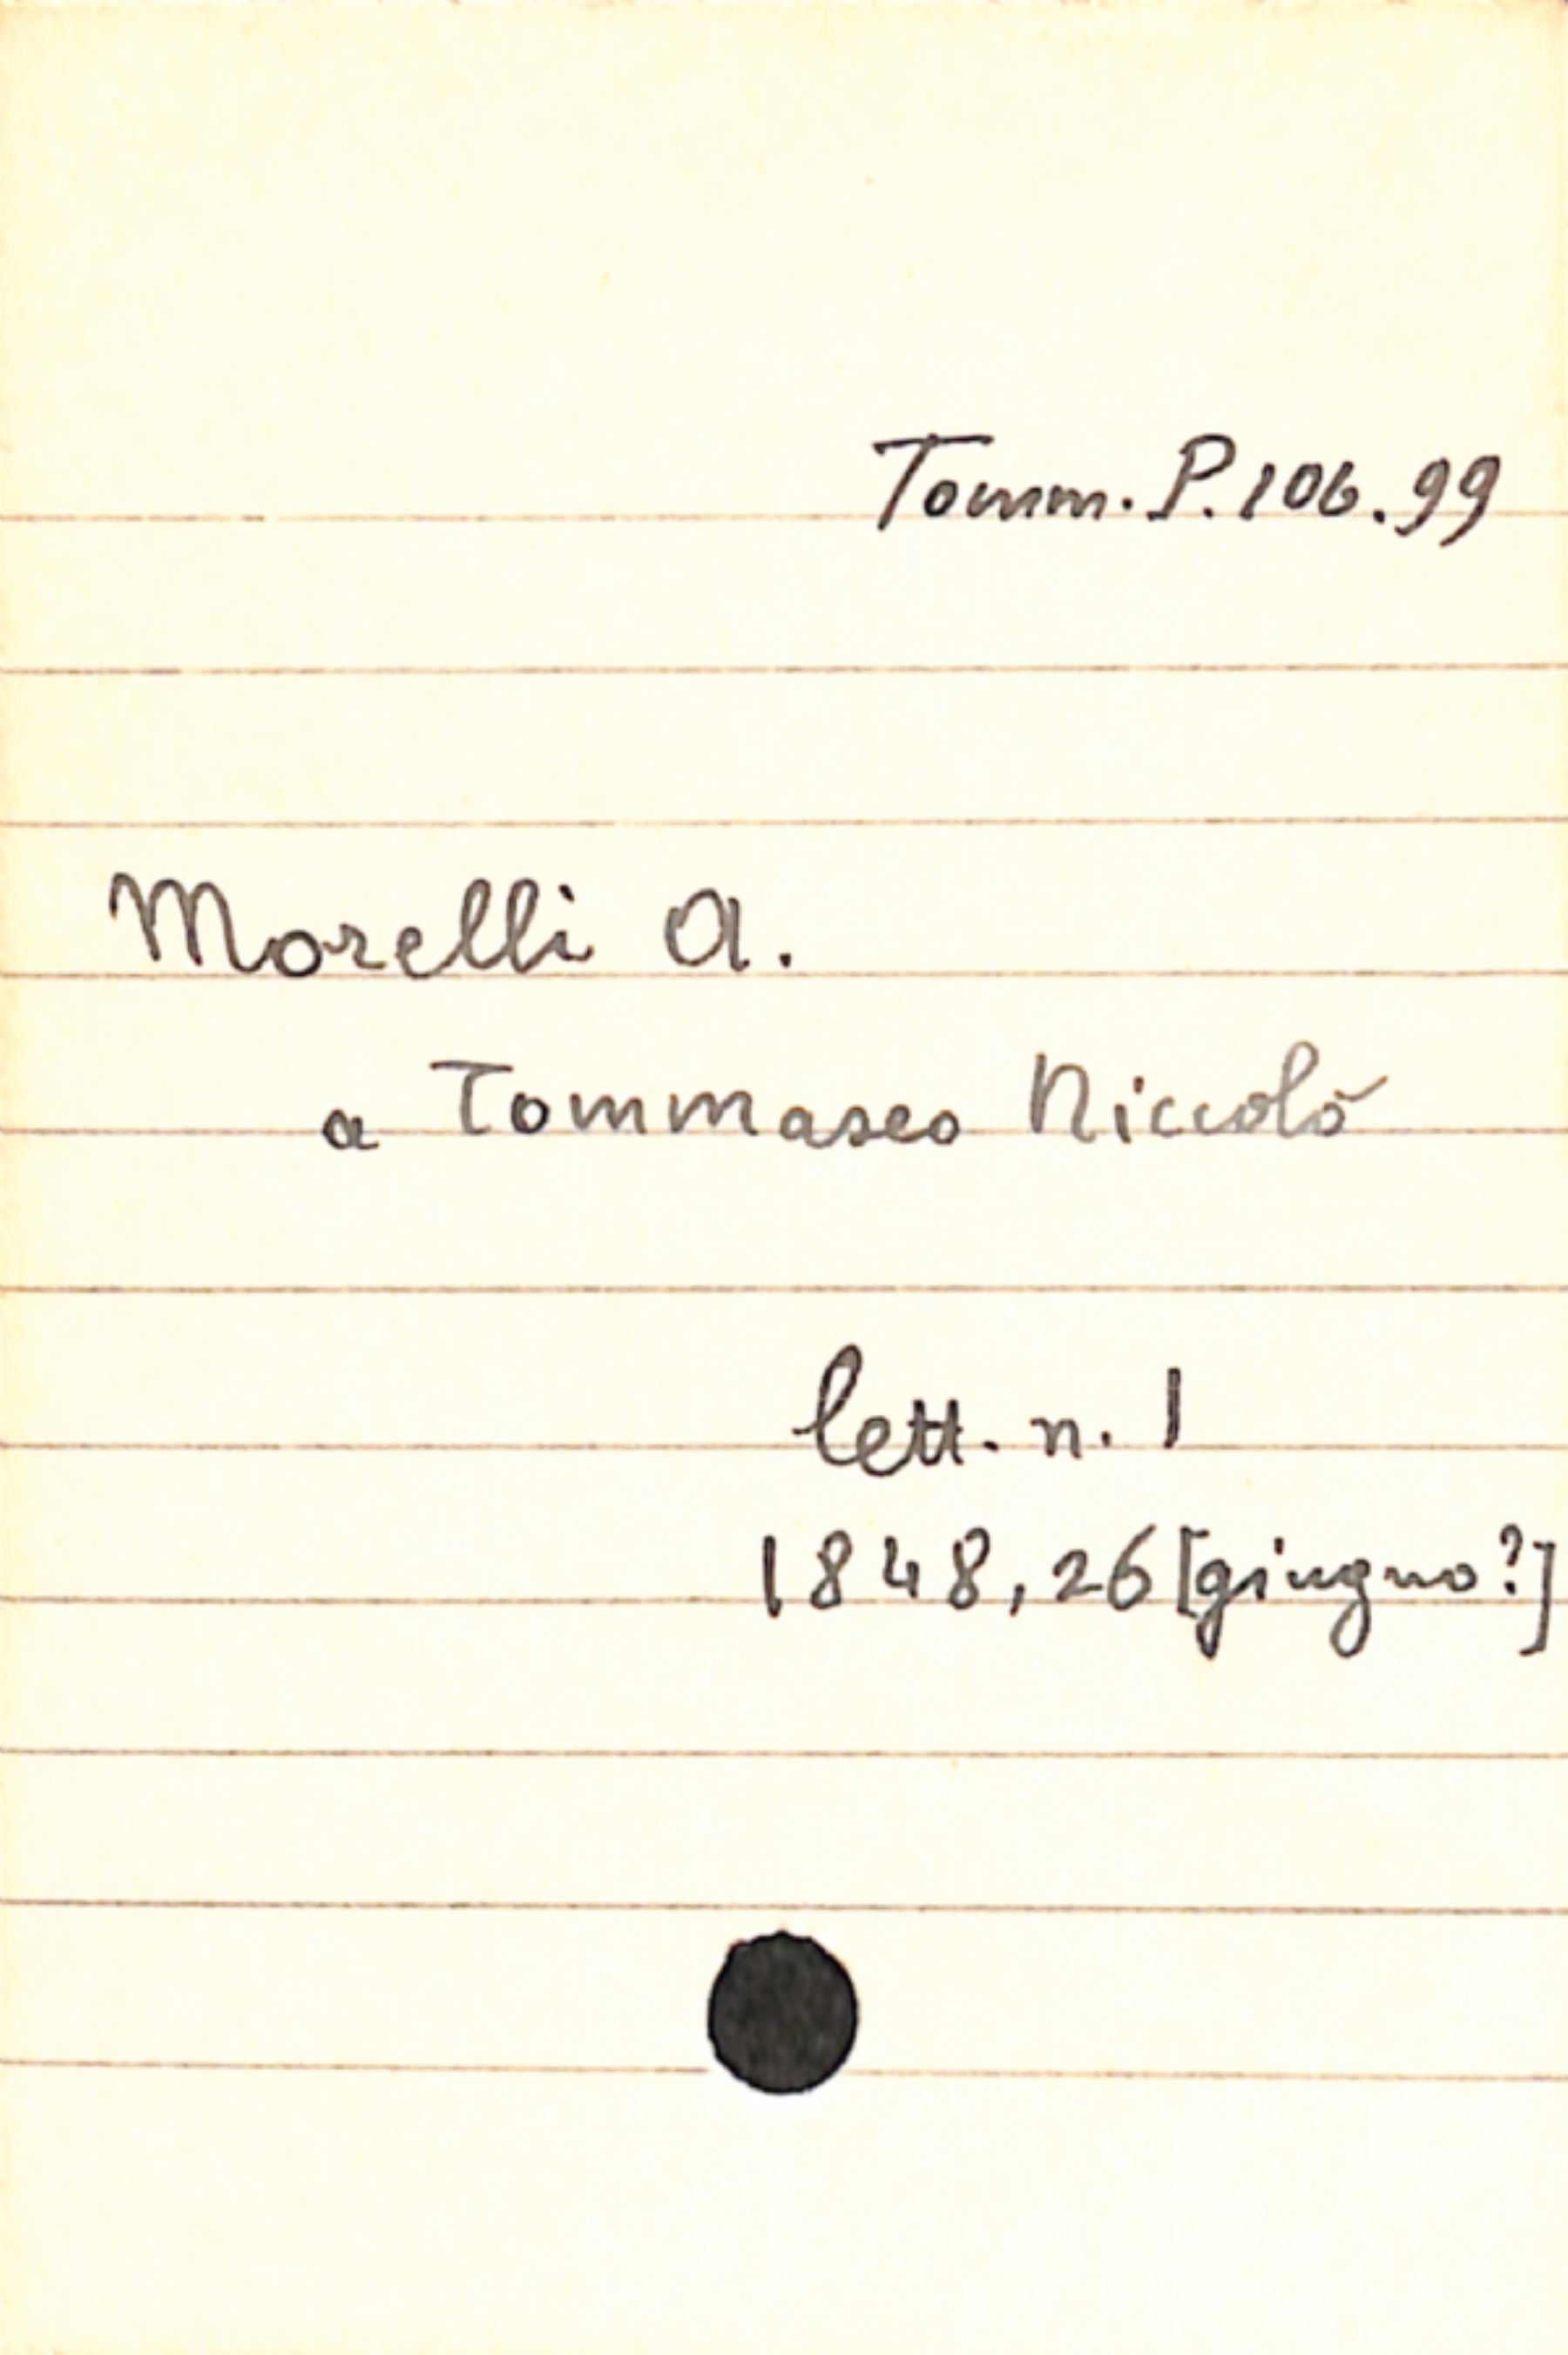 Tomm. P. 106. 99
Morelli A.
a Tommaseo Niccolò
lett. n. 1
1848, 26 [giugno?]